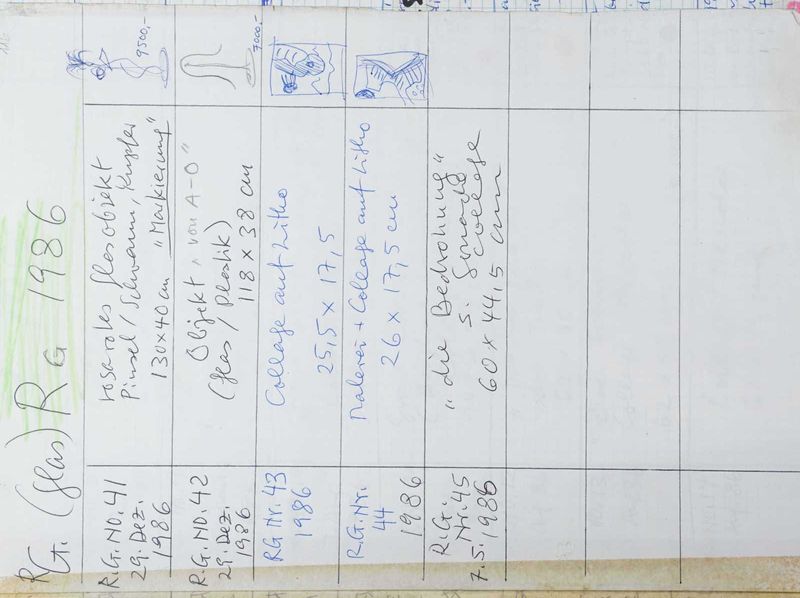 R.G. (glas) RG 1986
R.G. NO. 41
29. Dez.
1986
rosarotes glasobjekt
Pinsel / Schwamm, Kupfer
130x40 cm "Markierung"
9500,-
R.G. NO. 42
29. Dez.
1986
Objekt "von A-O"
(glas / Plastik)
118 x 38 cm
7000,-
RG Nr. 43
1986
Collage auf Litho
25,5 x 17,5
R.G. Nr.
44
1986
Malerei + Collage auf Litho
26 x 17,5 cm
R.G.
Nr. 45
7.5.1986
"die Bedrohung"
S.
Collage
60 x 44,5 cm